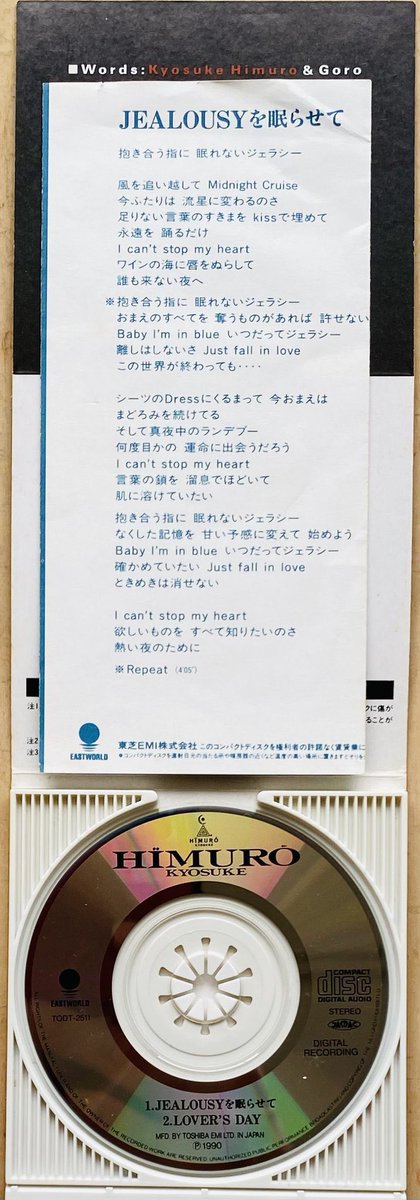 ■Words:Kyosuke Himuro & Goro
JEALOUSYを眠らせて
抱き合う指に 眠れないジェラシー
風を追い越して Midnight Cruise
今ふたりは 流星に変わるのさ
足りない言葉のすきまを kissで埋めて
永遠を 踊るだけ
I can't stop my heart
ワインの海に唇をぬらして
誰も来ない夜へ
※抱き合う指に 眠れないジェラシー
おまえのすべてを 奪うものがあれば 許せない
Baby I'm in blue いつだってジェラシー
離しはしないさ Just fall in love
この世界が終わっても‥‥
シーツのDressにくるまって 今おまえは
まどろみを続けてる
そして真夜中のランデブー
何度目かの 運命に出会うだろう
I can't stop my heart
言葉の鎖を 溜息でほどいて
肌に溶けていたい
抱き合う指に 眠れないジェラシー
なくした記憶を 甘い予感に変えて 始めよう
Baby I'm in blue いつだってジェラシー
確かめていたい Just fall in love
ときめきは消せない
I can't stop my heart
欲しいものを すべて知りたいのさ
熱い夜のために
※Repeat (4'05")
注1
クに傷が
ることが
注2
注3
EASTWORLD
東芝EMI株式会社 このコンパクトディスクを権利者の許諾なく賃貸業に
●コンパクトディスクを直射日光の当たる所や暖房器の近くなど温度の高い場所に置きますとそりを
HIMURO
KYOSUKE
HIMURO
KYOSUKE
EASTWORLD
TODT-2511
COMPACT
disc
DIGITAL AUDIO
STEREO
DIGITAL
RECORDING
1.JEALOUSYを眠らせて
2.LOVER'S DAY
MFD. BY TOSHIBA EMI LTD. IN JAPAN
Ⓟ1990